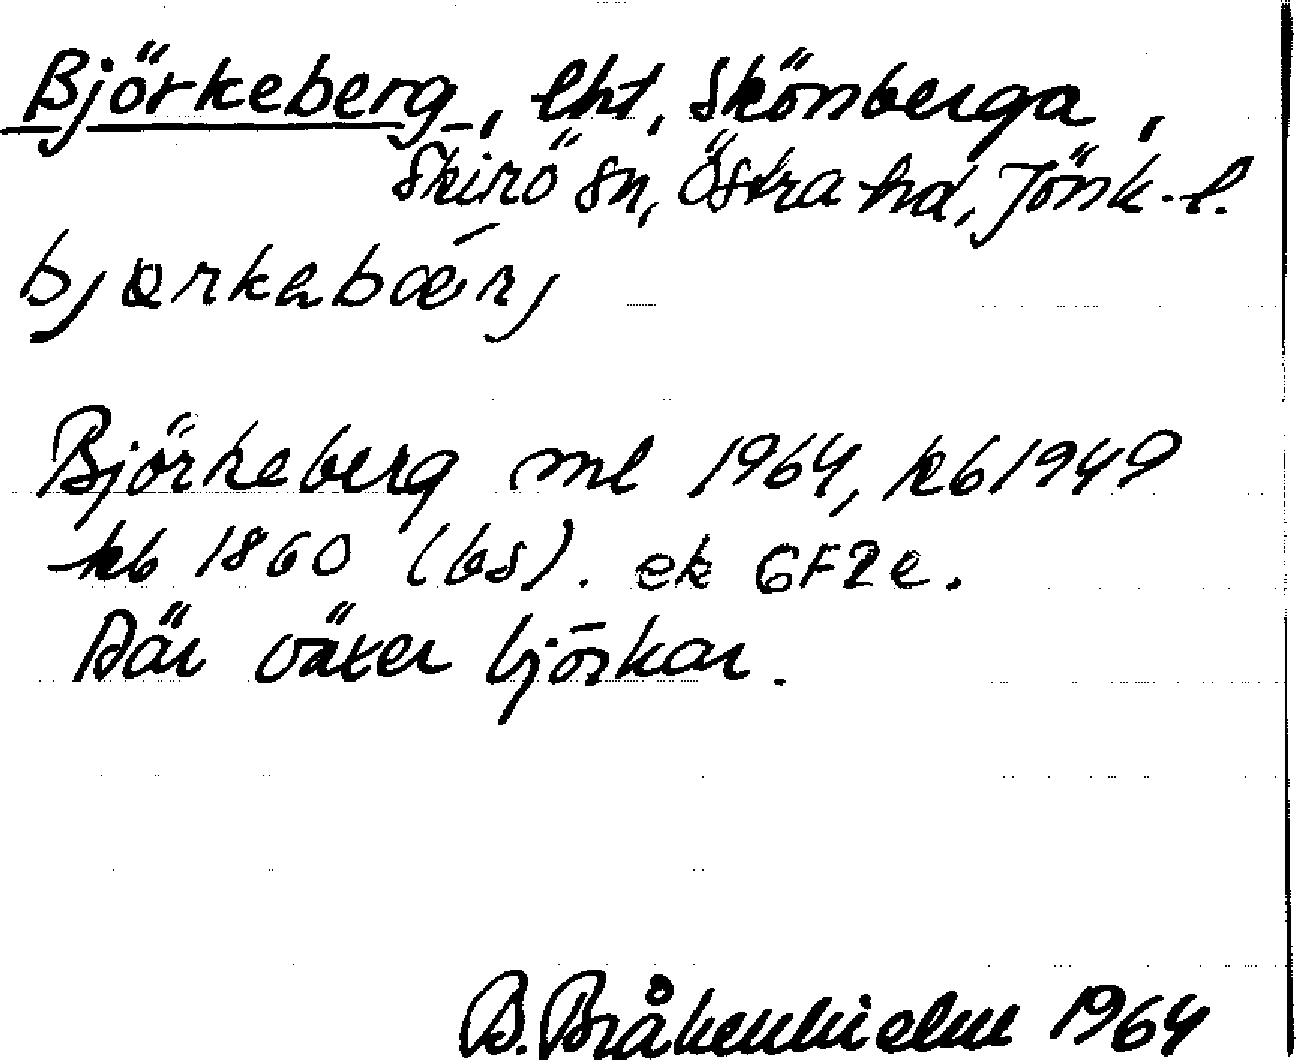 Björkeberg, lht, Skönberga,
Skirö sn, Östra hd, Jönk.l.
bjørkabǽrj
Björkeberg ml 1964, kb 1949
kb 1860 (bs). ek 6F2e.
Där växer björkar.
B. Bråkenhielm 1964